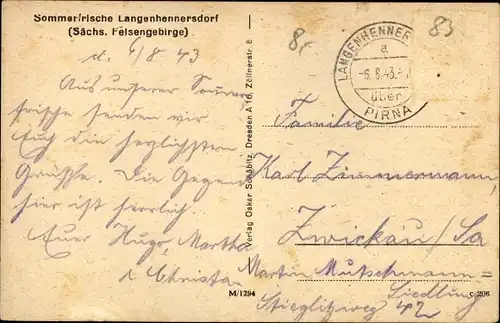 Sommerfrische Langenhennersdorf
(Sächs. Felsengebirge)
d. 6/8 43
Aus unserer Sommer
frische senden wir
Euch die herzlichsten
Grüsse. Die Gegend
hier ist herrlich.
Euer Hugo, Martha
u Christa
M/1294
Verlag Oskar Schäbitz, Dresden A 16, Zöllnerstr. 8
8,-
83
LANGENHENNER
a
-6.8.43.-
über
PIRNA
Familie
Karl Zimmermann,
Zwickau/Sa
Martin Mutschmann=
Siedlung
Stieglitzweg 42
c 206